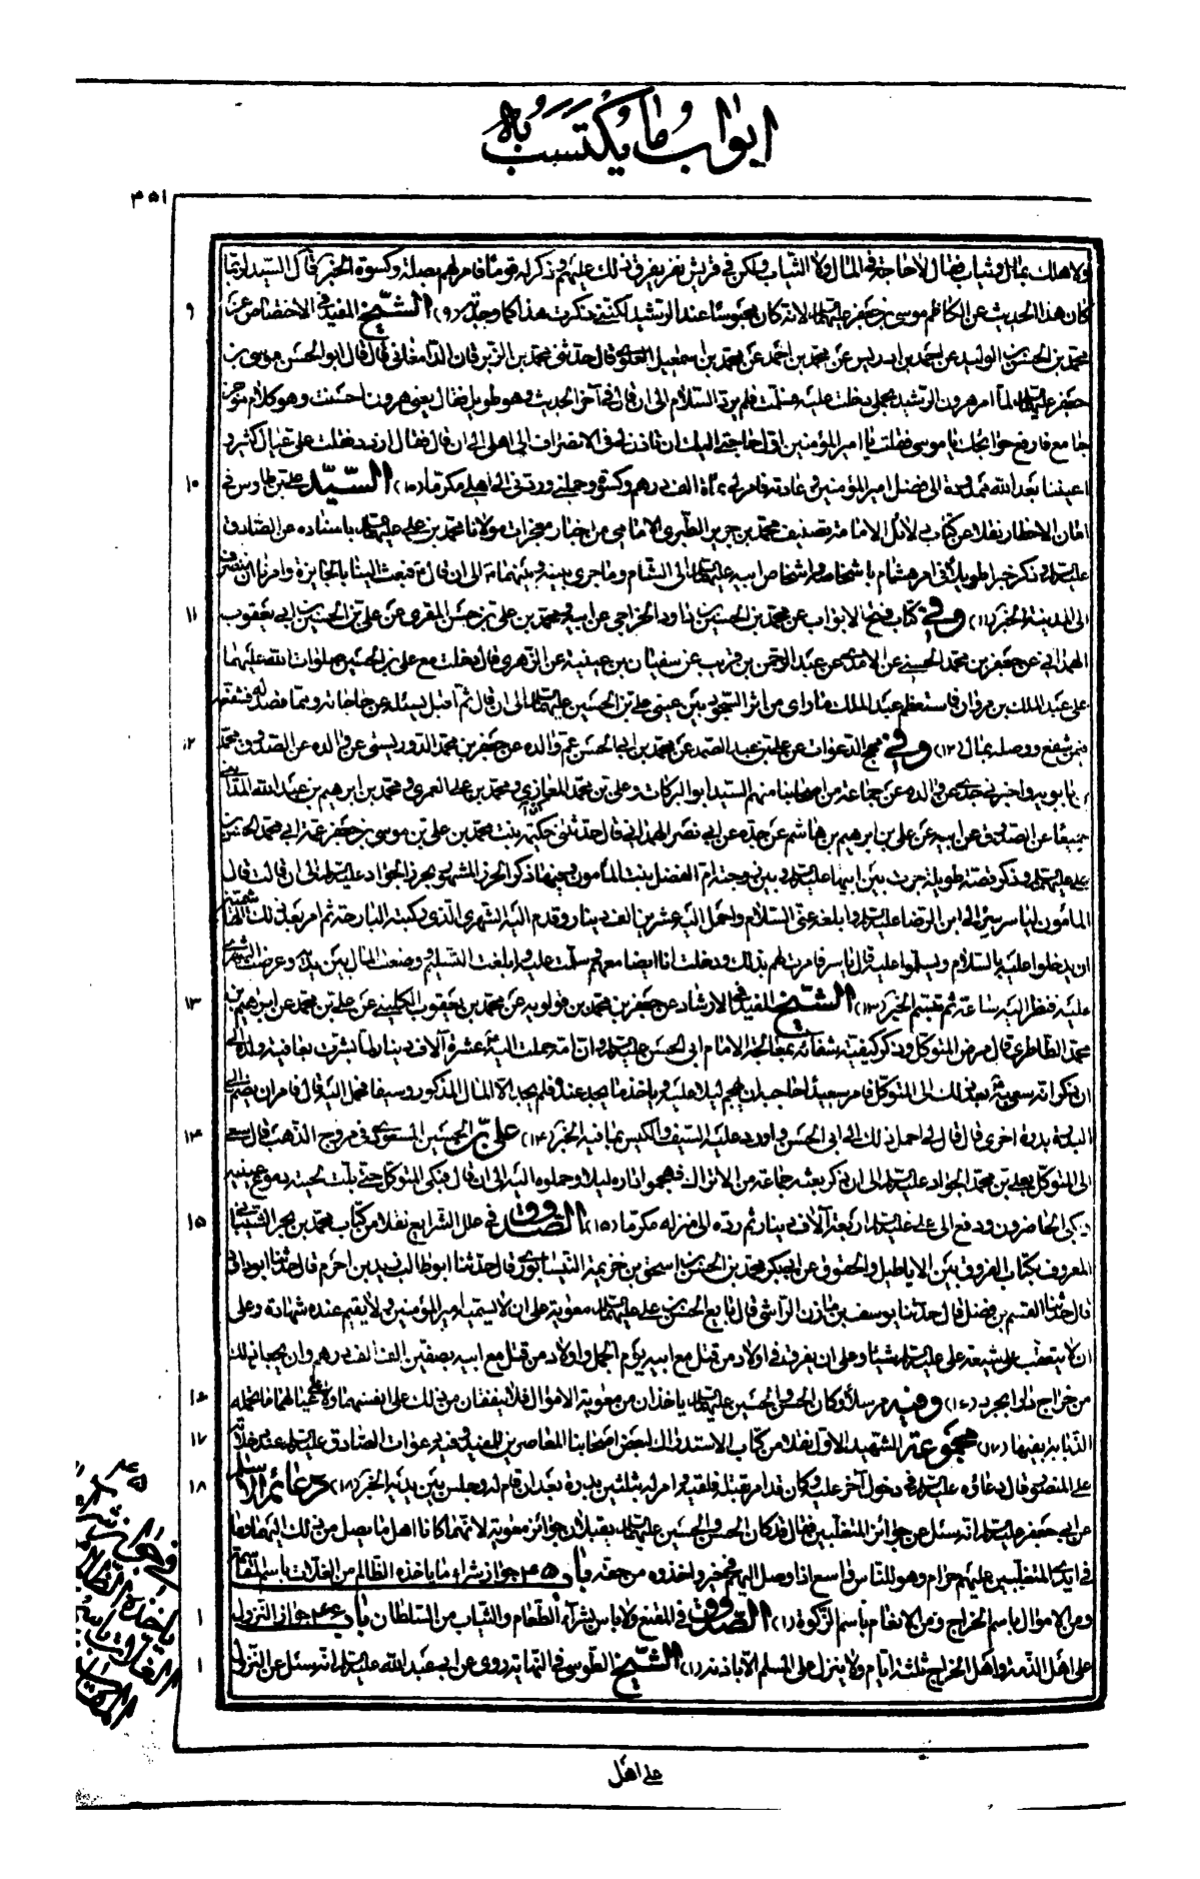 ابواب ما يكتسب به
٤٥١
ولاهلك بمال وثياب فقال لا حاجة في المال ولا الثياب ولكن في قريش نفر يفرق ذلك عليهم وذكر له قوما فامر لهم بصلة وكسوة الخبر قال السيد لربما
كان هذا الحديث عن الكاظم موسى بن جعفر عليهما لانه كان محبوسا عند الرشيد لكنني ذكرت هذا كما وجدته (٩) الشيخ المفيد في الاختصاص عن ٩
محمد بن الحسن بن الوليد عن احمد بن ادريس عن محمد بن احمد عن محمد بن اسمعيل العلوي قال حدثني محمد بن الزبرقان الدامغاني قال قال ابو الحسن موسى بن
جعفر عليهما لما امر هرون الرشيد بحملي دخلت عليه فسلمت فلم يرد السلام الى ان قال في آخر الحديث وهو طويل فقال يعني هرون احسنت وهو كلام موجز
جامع فارفع حوائجك يا موسى فقلت يا امير المؤمنين اول حاجتي اليك ان تاذن لي في الانصراف الى اهلي الى ان قال فقال ازدد فقلت علي عيال كثير و
اعيننا بعد الله ممدودة الى فضل امير المؤمنين وعادته فامر لي بمأة الف درهم وكسوة وحملني وردني الى اهلي مكرما (١٠) السيد علي بن طاوس في ١٠
امان الاخطار نقلا عن كتاب دلائل الامامة تصنيف محمد بن جرير الطبري الامامي من اخبار معجزات مولانا محمد بن علي عليهما باسناده عن الصادق
عليه السلم وذكر خبرا طويلا في امر هشام باشخاصه واشخاص ابيه عليهما الى الشام وما جرى بينه وبينهما الى ان قال فبعث الينا بالجايزة وامرنا ان ننصرف
الى المدينة الخبر (١١) وفي كتاب فتح الابواب عن محمد بن الحسين بن داود الخراجي عن ابيه ومحمد بن علي بن حسن المقري عن علي بن الحسين بن ابي يعقوب ١١
الهمداني عن جعفر بن محمد الحسني عن الآمدي عن عبد الرحمن بن قريب عن سفيان بن عيينة عن الزهري قال دخلت مع علي بن الحسين صلوات الله عليهما
على عبد الملك بن مروان فاستعظم عبد الملك ما راى من اثر السجود بين عيني علي بن الحسين عليهما الى ان قال ثم اقبل يسئله عن حاجاته ومما قصد له فشفعه
فيمن شفع ووصله بمال (١٢) وفي مهج الدعوات عن علي بن عبد الصمد عن محمد بن ابي الحسن عم والده عن جعفر بن محمد الدوريستي عن والده عن الصدوق محمد ١٢
بن بابويه واخبرني جدي عن والده عن جماعة من اصحابنا منهم السيد ابو البركات وعلي بن محمد المعاذي ومحمد بن علي العمري ومحمد بن ابرهيم بن عبد الله المدائني
جميعا عن الصدوق عن ابيه عن علي بن ابرهيم بن هاشم عن جده عن ابي نصر الهمداني قال حدثتني حكيمة بنت محمد بن علي بن موسى بن جعفر عمة ابي محمد الحسن بن
علي عليهما وذكر قصة طويلة جرت بين ابيها عليه السلم وبين زوجته ام الفضل بنت المامون وفيها ذكر الحرز المشهور بحرز الجواد عليه السلم الى ان قالت قال
المامون لياسر سر الى ابن الرضا عليه السلم وابلغه عني السلام واحمل اليه عشرين الف دينار وقدم اليه الشهري الذي ركبته البارحة ثم امر بعد ذلك الهاشميين
ان يدخلوا عليه بالسلام ويسلموا عليه قال ياسر فامرت لهم بذلك ودخلت انا ايضا معهم وسلمت عليه وابلغت التسليم ووضعت المال بين يديه وعرضت الشهري
عليه فنظر اليه ساعة ثم تبسم الخبر (١٣) الشيخ المفيد في الارشاد عن جعفر بن محمد بن قولويه عن محمد بن يعقوب الكليني عن علي بن محمد عن ابراهيم بن ١٣
محمد الطاهري قال مرض المتوكل وذكر كيفية شفائه بمعالجة الامام ابي الحسن عليه السلم وان امه حملت اليه عشرة آلاف دينار لما بشرت بعافية ولدها الى
ان ذكر انه سعي به بعد ذلك الى المتوكل فامر سعيدا الحاجب ان يهجم ليلا عليه وياخذ ما يجد عنده فلم يجد الا المال المذكور وسيفا فحمل اليه قال فامر ان يضم الى
البدرة بدرة اخرى قال قال لي احمل ذلك الى ابي الحسن واردد عليه السيف والكيس بما فيه الخبر (١٤) علي بن الحسين المسعودي في مروج الذهب قال سعي ١٤
الى المتوكل بعلي بن محمد الجواد عليهما الى ان ذكر بعثه جماعة من الاتراك فهجموا داره ليلا وحملوه اليه الى ان قال فبكى المتوكل حتى بلت لحيته دموع عينيه
وبكى الحاضرون ودفع الى علي عليه السلم اربعة آلاف دينار ثم رده الى منزله مكرما (١٥) الصدوق في علل الشرايع نقلا من كتاب محمد بن بحر الشيباني ١٥
المعروف بكتاب الفروق بين الاباطيل والحقوق عن ابي بكر محمد بن الحسن بن اسحق بن خزيمة النيسابوري قال حدثنا ابو طالب زيد بن اخزم قال حدثنا ابو داود
قال حدثنا القسم بن فضل قال حدثنا يوسف بن مازن الراشي قال بايع الحسن بن علي عليهما معوية على ان لا يسميه امير المؤمنين ولا يقيم عنده شهادة وعلى
ان لا يتعقب على شيعة علي عليه السلم شيئا وعلى ان يفرق في اولاد من قتل مع ابيه يوم الجمل واولاد من قتل مع ابيه بصفين الف الف درهم وان يجعل ذلك
من خراج دارابجرد (١٦) وفيه مرسلا وكان الحسن والحسين عليهما ياخذان من معوية الاموال فلا ينفقان من ذلك على انفسهما ولا على عيالهما ما تحمله ١٦
الذبابة بفيها (١٧) مجموعة الشهيد الاول نقلا من كتاب الاستدراك لبعض اصحابنا المعاصرين للمفيد وفيه دعوات الصادق عليه السلم عند دخوله ١٧
على المنصور قال دعاؤه عليه السلم في دخول آخر عليه وكان قد امر بقتله فلقيه وامر له بثلثين بدرة بعد ان قام له وجلس بين يديه الخبر (١٨) دعائم الاسلام ١٨
عن ابي جعفر عليه السلم انه سئل عن جوائز المتغلبين فقال قد كان الحسن والحسين عليهما يقبلان جوائز معوية لانهما كانا اهل ما يصل من ذلك اليهما وما
في ايدي المتغلبين عليهم حرام وهو للناس واسع اذا وصل اليهم في خير واخذوه من حقه باب ٤٥ جواز شراء ما ياخذه الظالم من الغلات باسم المقاسمة
ومن الاموال باسم الخراج ومن الانعام باسم الزكوة (١) الصدوق في المقنع ولا باس بشراء الطعام والثياب من السلطان باب ٤٦ جواز النزول ١
على اهل الذمة واهل الخراج ثلثة ايام ولا ينزل على المسلم الا باذنه (١) الشيخ الطوسي في النهاية روى عن ابي عبد الله عليه السلم انه سئل عن النزول ١
على اهل